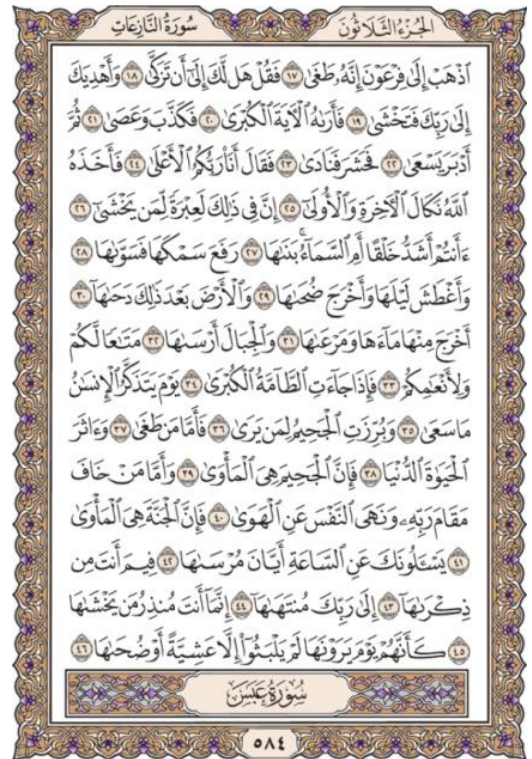 سُورَةُ النَّازِعَاتِ الجُزءُ الثَّلَاثُونَ
ٱذْهَبْ إِلَىٰ فِرْعَوْنَ إِنَّهُۥ طَغَىٰ ١٧ فَقُلْ هَل لَّكَ إِلَىٰٓ أَن تَزَكَّىٰ ١٨ وَأَهْدِيَكَ
إِلَىٰ رَبِّكَ فَتَخْشَىٰ ١٩ فَأَرَىٰهُ ٱلْءَايَةَ ٱلْكُبْرَىٰ ٢٠ فَكَذَّبَ وَعَصَىٰ ٢١ ثُمَّ
أَدْبَرَ يَسْعَىٰ ٢٢ فَحَشَرَ فَنَادَىٰ ٢٣ فَقَالَ أَنَا۠ رَبُّكُمُ ٱلْأَعْلَىٰ ٢٤ فَأَخَذَهُ
ٱللَّهُ نَكَالَ ٱلْءَاخِرَةِ وَٱلْأُولَىٰٓ ٢٥ إِنَّ فِى ذَٰلِكَ لَعِبْرَةً لِّمَن يَخْشَىٰٓ ٢٦
ءَأَنتُمْ أَشَدُّ خَلْقًا أَمِ ٱلسَّمَآءُ ۚ بَنَىٰهَا ٢٧ رَفَعَ سَمْكَهَا فَسَوَّىٰهَا ٢٨
وَأَغْطَشَ لَيْلَهَا وَأَخْرَجَ ضُحَىٰهَا ٢٩ وَٱلْأَرْضَ بَعْدَ ذَٰلِكَ دَحَىٰهَآ ٣٠
أَخْرَجَ مِنْهَا مَآءَهَا وَمَرْعَىٰهَا ٣١ وَٱلْجِبَالَ أَرْسَىٰهَا ٣٢ مَتَٰعًا لَّكُمْ
وَلِأَنْعَٰمِكُمْ ٣٣ فَإِذَا جَآءَتِ ٱلطَّآمَّةُ ٱلْكُبْرَىٰ ٣٤ يَوْمَ يَتَذَكَّرُ ٱلْإِنسَٰنُ
مَا سَعَىٰ ٣٥ وَبُرِّزَتِ ٱلْجَحِيمُ لِمَن يَرَىٰ ٣٦ فَأَمَّا مَن طَغَىٰ ٣٧ وَءَاثَرَ
ٱلْحَيَوٰةَ ٱلدُّنْيَا ٣٨ فَإِنَّ ٱلْجَحِيمَ هِىَ ٱلْمَأْوَىٰ ٣٩ وَأَمَّا مَنْ خَافَ
مَقَامَ رَبِّهِۦ وَنَهَى ٱلنَّفْسَ عَنِ ٱلْهَوَىٰ ٤٠ فَإِنَّ ٱلْجَنَّةَ هِىَ ٱلْمَأْوَىٰ
٤١ يَسْـَٔلُونَكَ عَنِ ٱلسَّاعَةِ أَيَّانَ مُرْسَىٰهَا ٤٢ فِيمَ أَنتَ مِن
ذِكْرَىٰهَآ ٤٣ إِلَىٰ رَبِّكَ مُنتَهَىٰهَآ ٤٤ إِنَّمَآ أَنتَ مُنذِرُ مَن يَخْشَىٰهَا
٤٥ كَأَنَّهُمْ يَوْمَ يَرَوْنَهَا لَمْ يَلْبَثُوٓا۟ إِلَّا عَشِيَّةً أَوْ ضُحَىٰهَا ٤٦
سُورَةُ عَبَسَ
٥٨٤